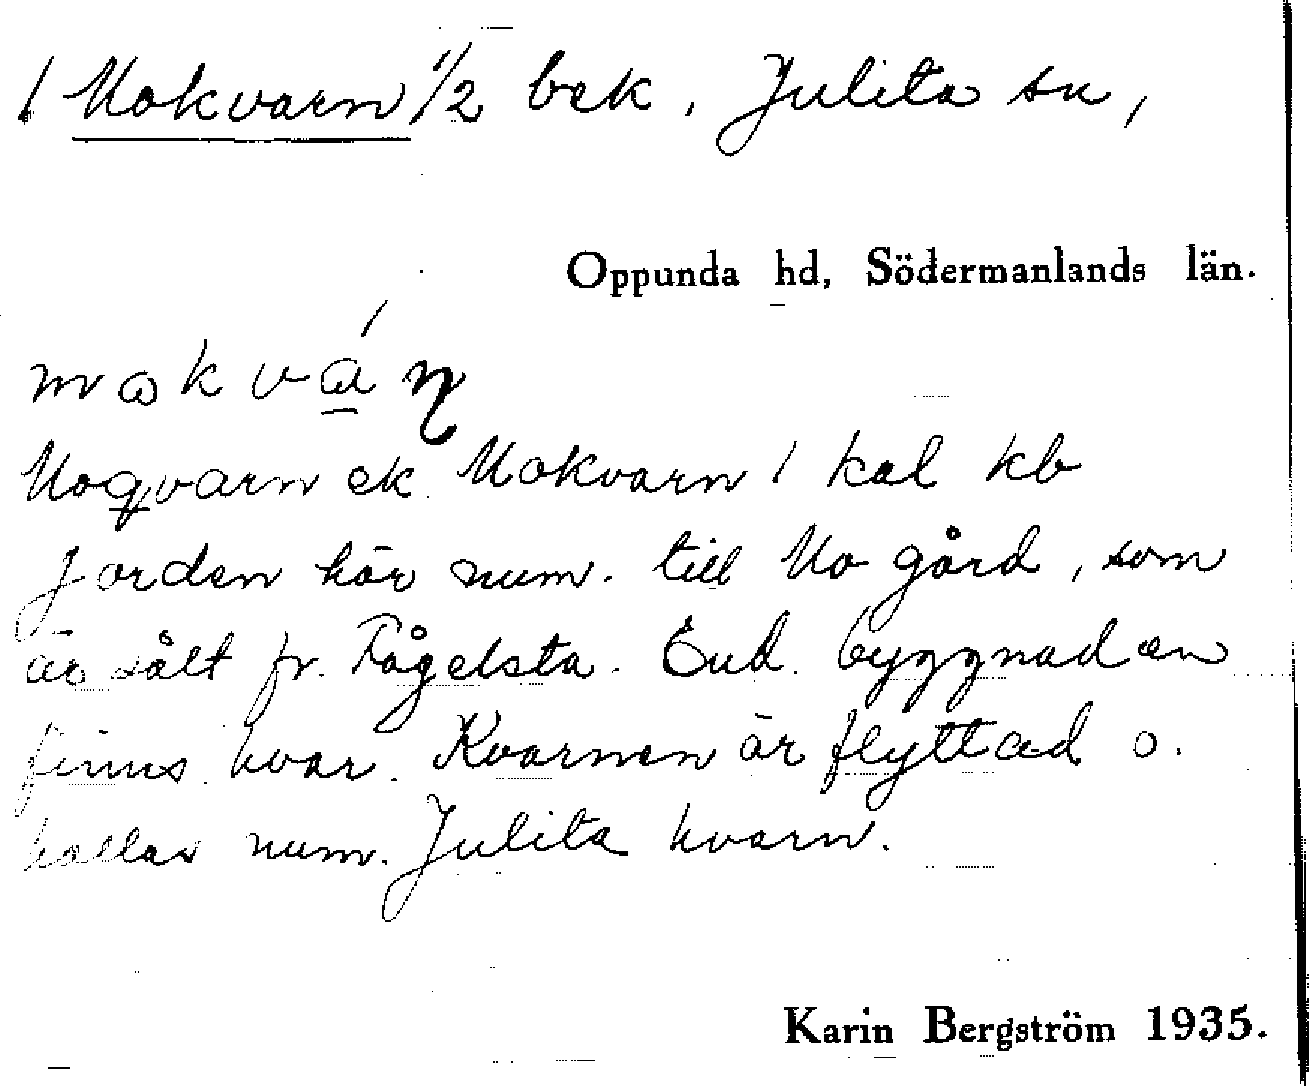 / Mokvarn 1/2 bek. Julita sn,
Oppunda hd, Södermanlands län.
mokvá̱ɳ
Moqvarn ek. Mokvarn / kal kb
Jorden hör num. till Mo gård, som
är sålt fr. Fågelsta. End. byggnaden
finns kvar. Kvarnen är flyttad o.
kallas num. Julita kvarn.
Karin Bergström 1935.